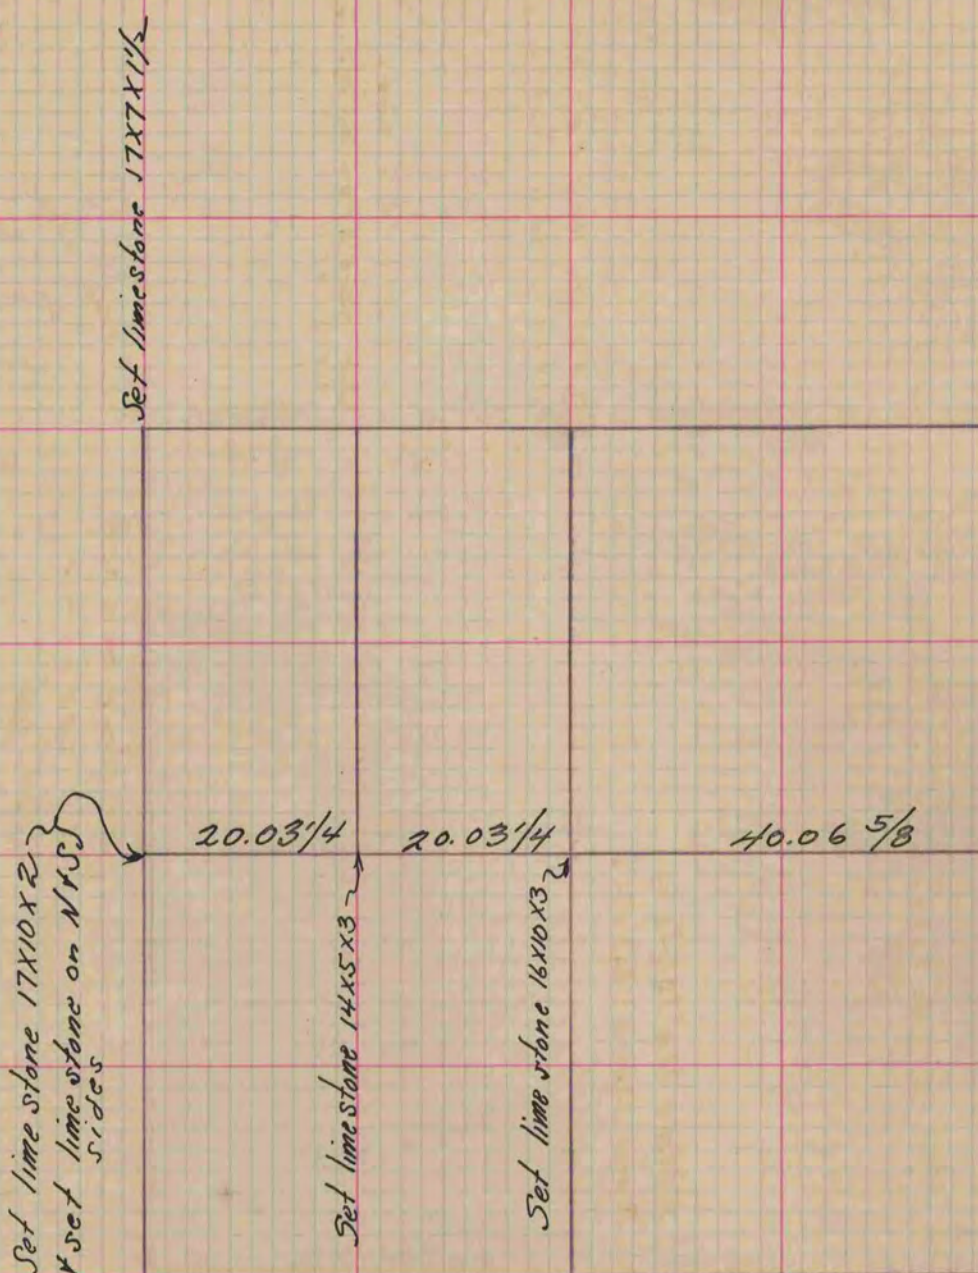 Set limestone 17X7X1½
20.03¼
20.03¼
40.06 ⅝
Set lime stone 17X10X2
& set lime stone on N & S
sides
Set limestone 14X5X3
Set lime stone 16X10X3